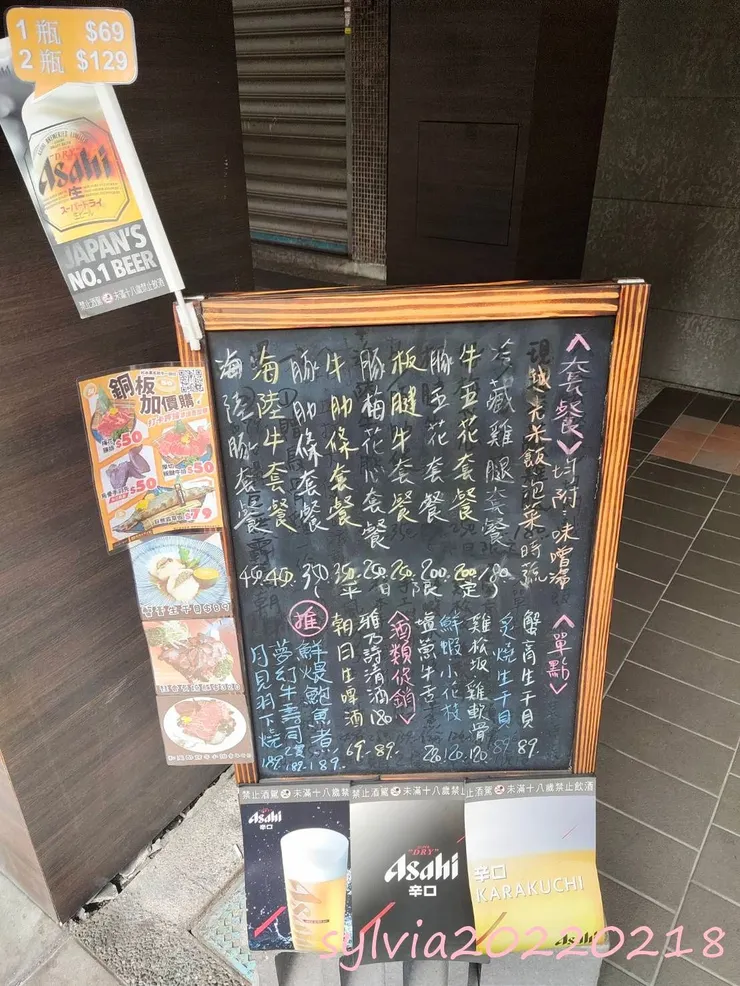 1瓶 $69
2瓶 $129
Asahi
生
スーパードライ
JAPAN'S
NO.1 BEER
禁止酒駕 未滿十八歲禁止飲酒
銅板
加價購
$50
$50
$50
$79
<套餐>均附:味噌湯
現鍋 白米飯 泡菜 時蔬
冷藏雞腿套餐 180
牛五花套餐 200
豚五花套餐 200
板腱牛套餐 250
豚梅花心套餐 250
牛肋條套餐 350
豚肋條套餐 350
海陸牛套餐 450
海陸豚套餐 450
平日限定
<單點>
蟹膏生干貝 89.
炙燒生干貝 89.
雞松坂 雞軟骨 120
鮮蝦 小花枝 120
鹽蔥牛舌
<酒類促銷>
雅乃詩清酒 180 89.
朝日生啤酒 69.
推
鮮煨鮑魚煮 189.
夢幻牛壽司 2貫 189.
月見羽下燒 189.
禁止酒駕 未滿十八歲禁 禁止酒駕 未滿十八歲禁止 止酒駕 未滿十八歲禁止飲酒
Asahi
辛口
DRY
Asahi
辛口
辛口
KARAKUCHI
Asahi
sylvia20220218